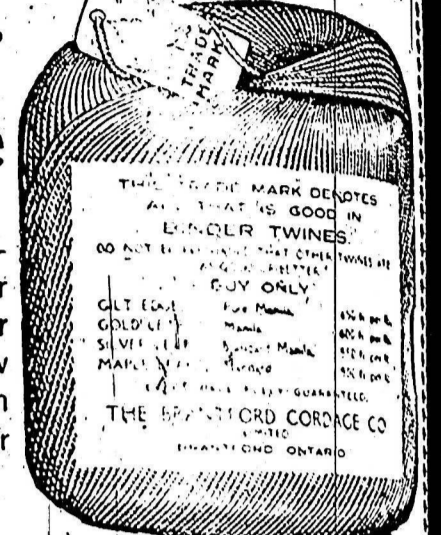 TRADE
MARK
THIS TRADE MARK DENOTES
ALL THAT IS GOOD IN
BINDER TWINES.
DO NOT THAT OTHER TWINES ARE
BUY ONLY
GILT EDGE Pure Manila 650 ft per lb.
GOLD LEAF Manila 600 ft per lb.
SILVER LEAF Manila 550 ft per lb.
MAPLE LEAF 500 ft per lb.
GUARANTEED.
THE BRANTFORD CORDAGE CO
LIMITED
BRANTFORD ONTARIO